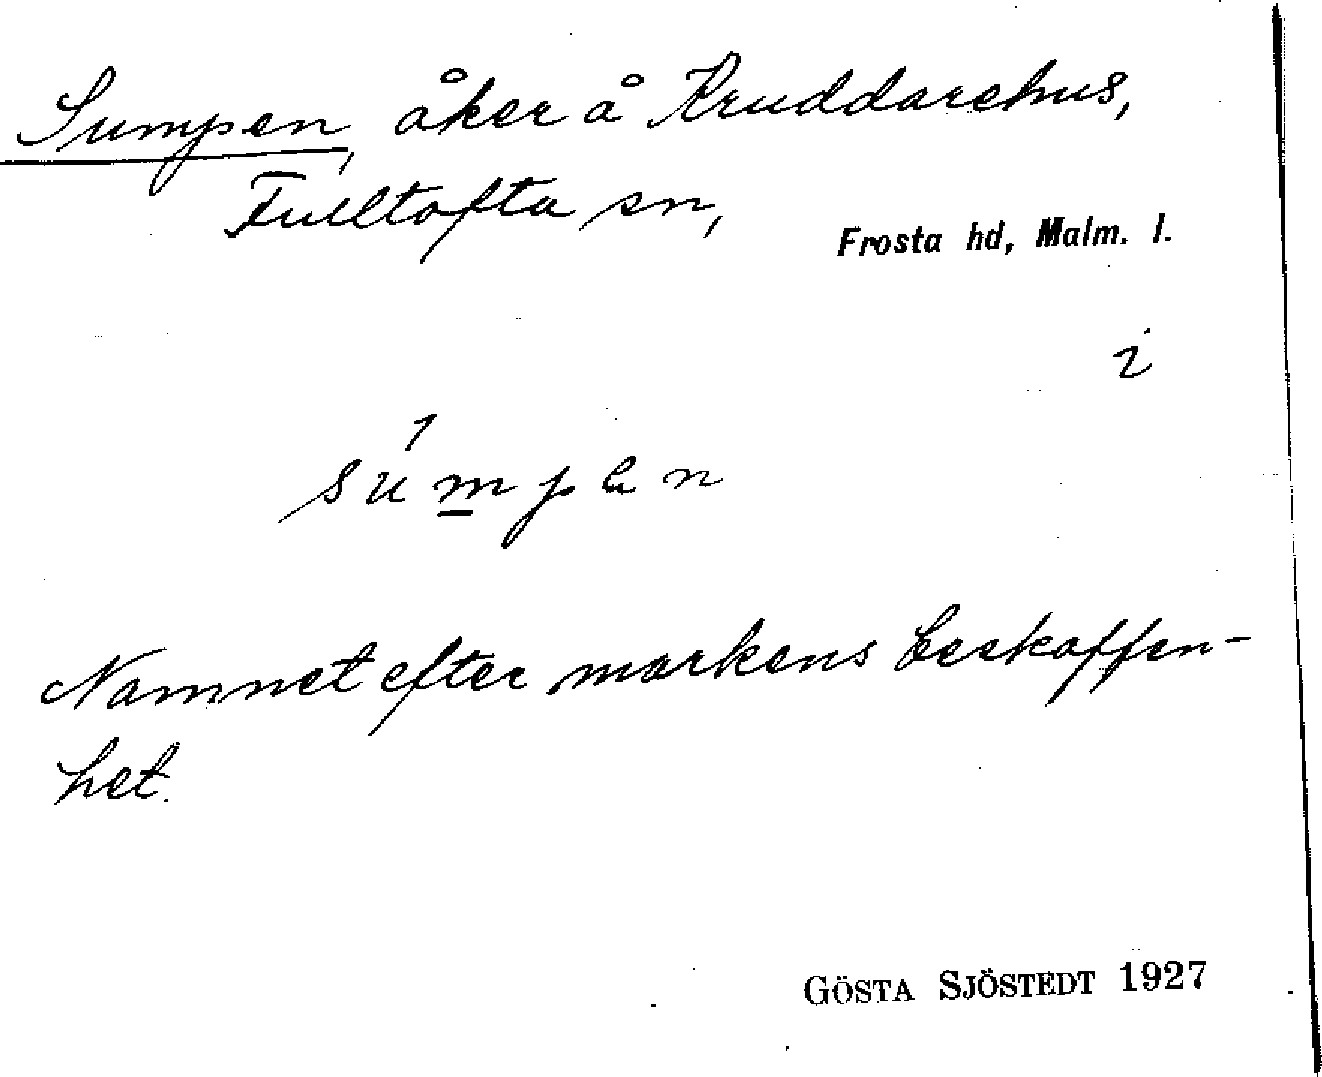 Sumpen, åker å Kruddarehus,
Fulltofta sn,
Frosta hd, Malm. l.
i
sumpen
Namnet efter markens beskaffen-
het.
GÖSTA SJÖSTEDT 1927